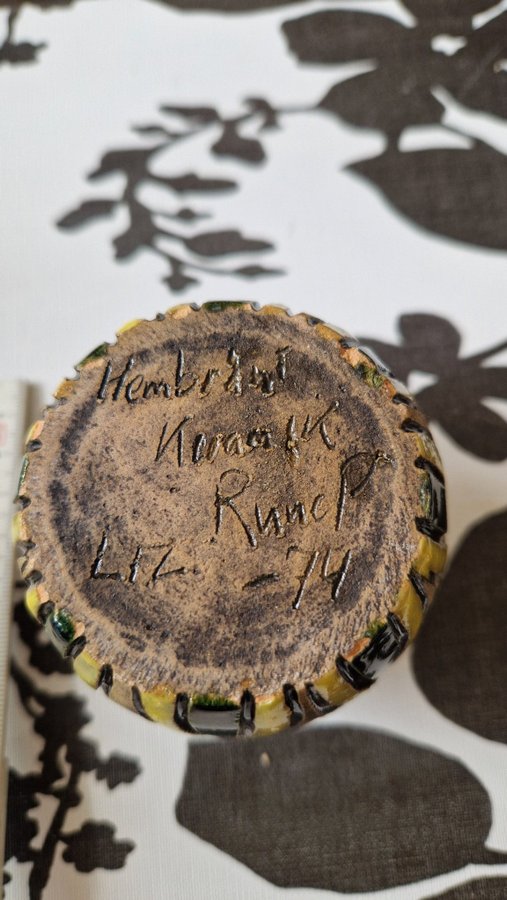 Hembränt
Keramik
Rune P
LIZ -74